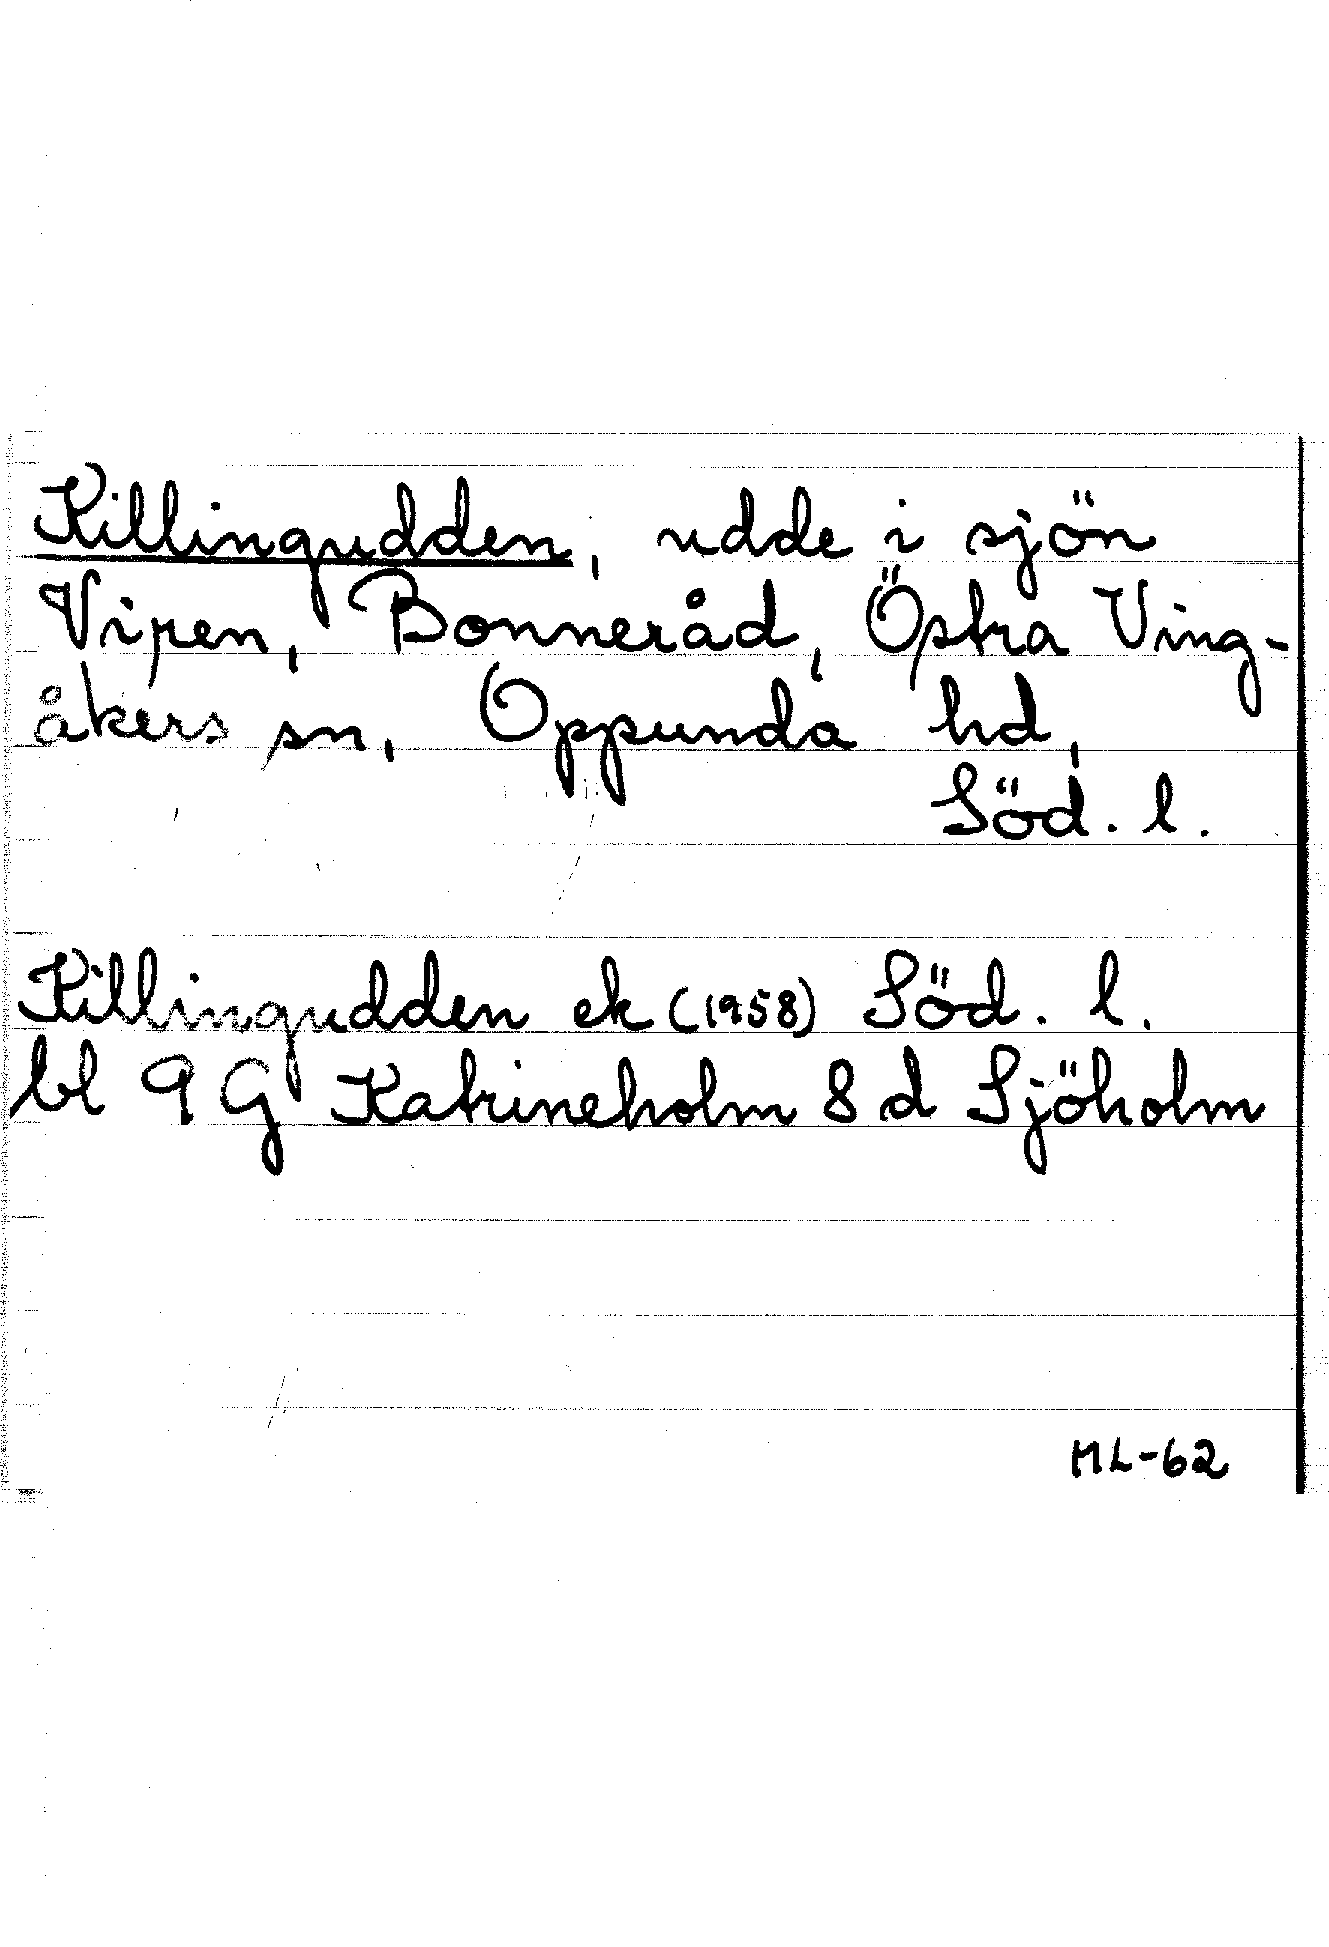 Killingudden, udde i sjön
Viren, Bonneråd, Östra Ving-
åkers sn, Oppunda hd,
Söd. l.
Killingudden ek (1958) Söd. l.
bl 9 G Katrineholm 8 d Sjöholm
ML-62